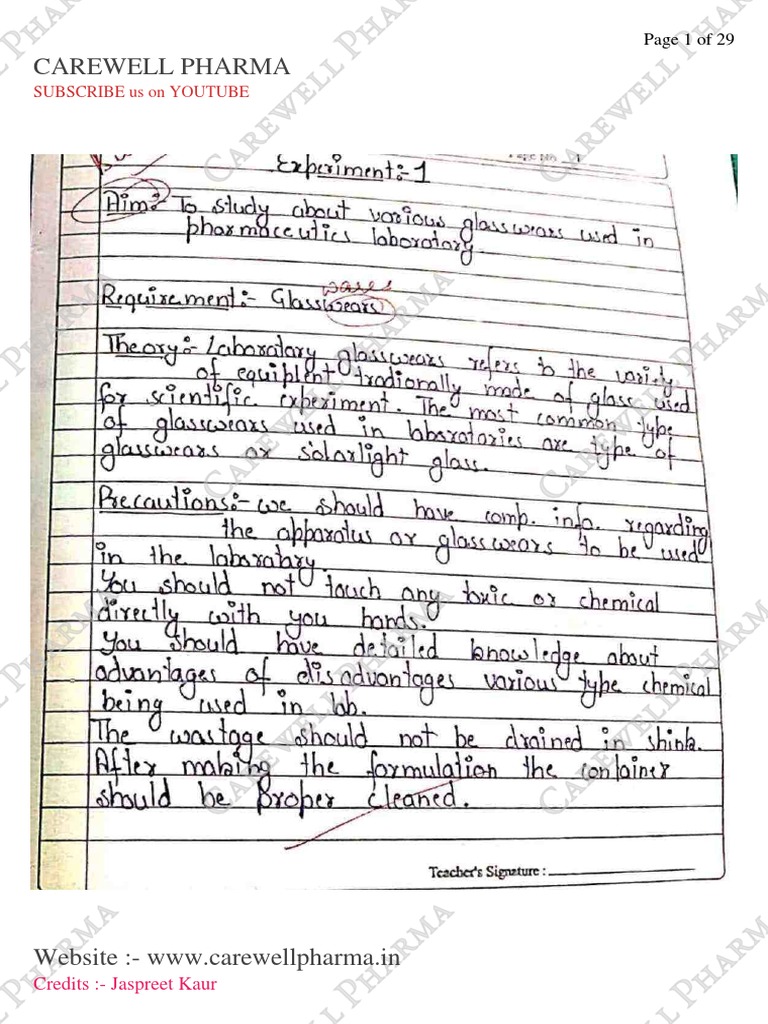 Page 1 of 29
CAREWELL PHARMA
SUBSCRIBE us on YOUTUBE
Experiment:-1
Aim:- To study about various glasswears used in
pharmaceutics laboratory.
wares
Requirement:- Glasswears
Theory:- Laboratary glasswears refers to the variety
of equiplent tradionally made of glass used
for scientific experiment. The most common type
of glasswears used in labsratories are type of
glasswears or solarlight glass.
Precautions:- we should have comp. info. regarding
the apparatus or glasswears to be used
in the laboratary.
You should not touch any toxic or chemical
directly with you hands.
You should have detailed knowledge about
advantages of disadvantages various type chemical
being used in lab.
The wastage should not be drained in shink.
After making the formulation the container
should be proper cleaned.
Teacher's Signature :
Website :- www.carewellpharma.in
Credits :- Jaspreet Kaur
CAREWELL PHARMA